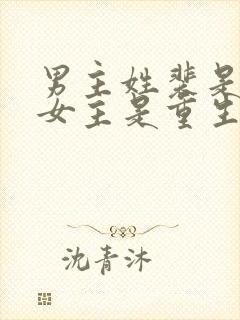 男主姓裴是
女主是重生
沈青沐